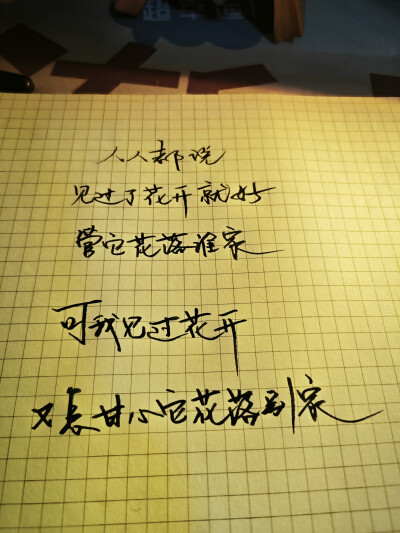 人人都说
见过了花开就好
管它花落谁家
可我见过花开
又怎甘心它花落别家